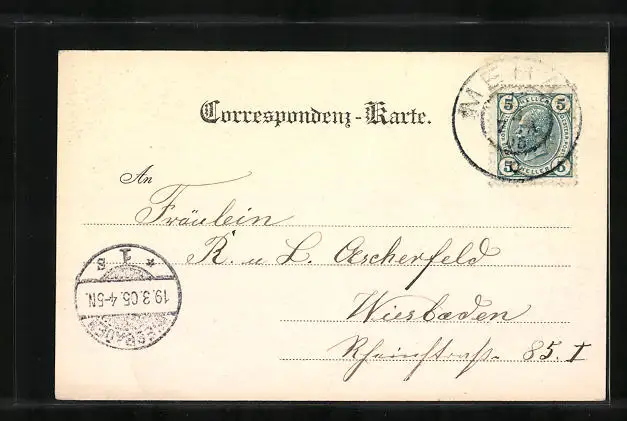 Correspondenz-Karte.
An
Fräulein
R. u L. Aescherfeld
Wiesbaden
Rheinstrasse 85 I
5 HELLER 5
5 HELLER 5
MERAN
05
1
* S
19.3.05.4-5N.
WIESBADEN